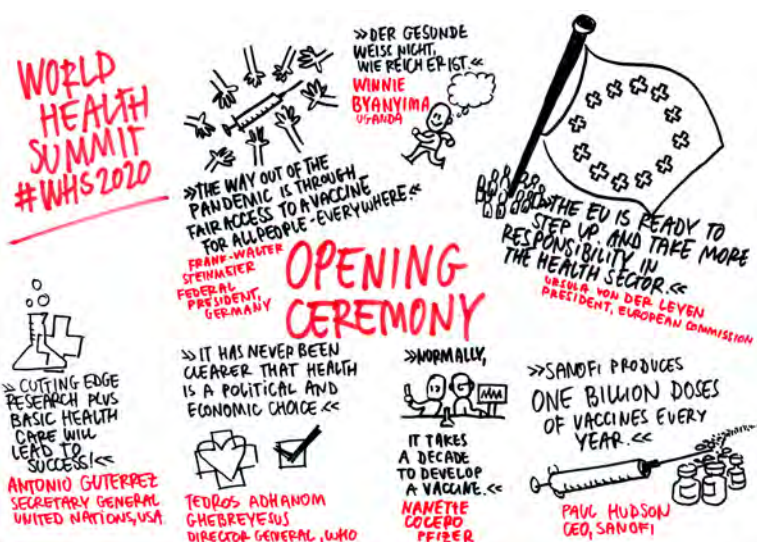 WORLD
HEALTH
SUMMIT
#WHS2020
»THE WAY OUT OF THE
PANDEMIC IS THROUGH
FAIR ACCESS TO A VACCINE
FOR ALL PEOPLE - EVERYWHERE.«
FRANK-WALTER
STEINMEIER
FEDERAL
PRESIDENT,
GERMANY
»DER GESUNDE
WEISS NICHT,
WIE REICH ER IST.«
WINNIE
BYANYIMA
UGANDA
»THE EU IS READY TO
STEP UP. AND TAKE MORE
RESPONSIBILITY IN
THE HEALTH SECTOR.«
URSULA VON DER LEYEN
PRESIDENT, EUROPEAN COMMISSION
OPENING
CEREMONY
»CUTTING EDGE
RESEARCH PLUS
BASIC HEALTH
CARE WILL
LEAD TO
SUCCESS!«
ANTONIO GUTERREZ
SECRETARY GENERAL
UNITED NATIONS, USA
»IT HAS NEVER BEEN
CLEARER THAT HEALTH
IS A POLITICAL AND
ECONOMIC CHOICE«
TEDROS ADHANOM
GHEBREYESUS
DIRECTOR GENERAL, WHO
»NORMALLY,
IT TAKES
A DECADE
TO DEVELOP
A VACCINE.«
NANETTE
COCERO
PFIZER
»SANOFI PRODUCES
ONE BILLION DOSES
OF VACCINES EVERY
YEAR.«
PAUL HUDSON
CEO, SANOFI